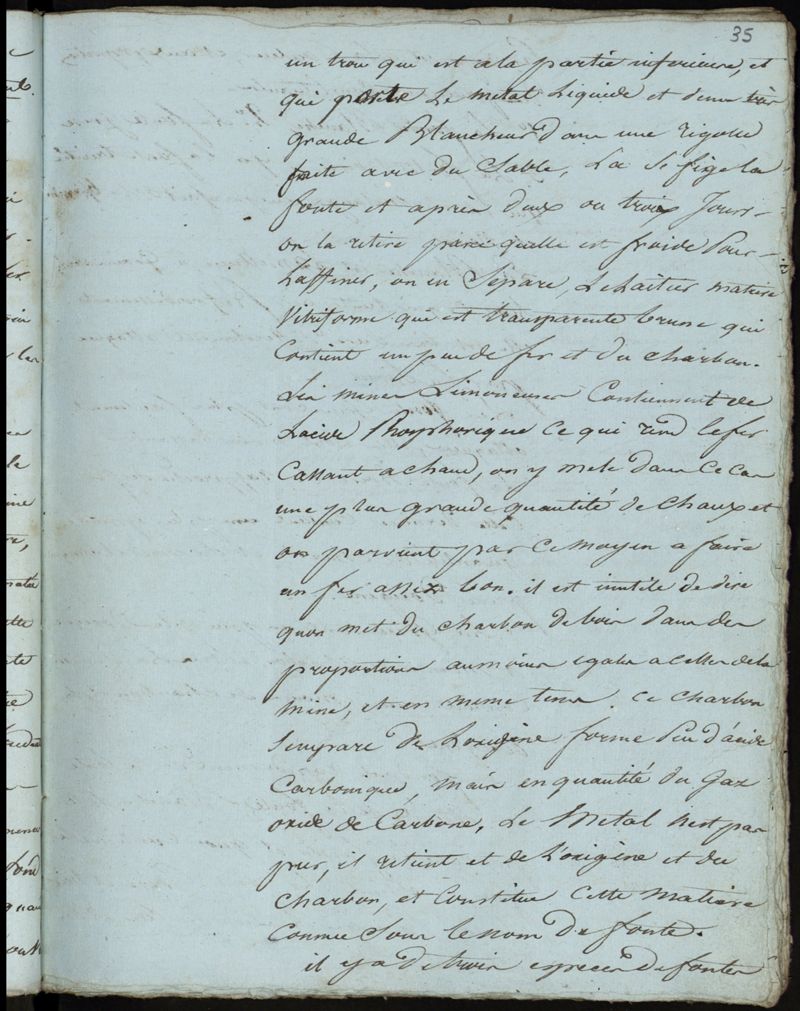 35
un trou qui est ala partie inferieure, et
qui porte Le metal Liquide et d'une très
grande Blancheur dans une rigolle
faite avec du Sable, La Se fige la
fonte et après deux ou trois Jours
on la retire parce quelle est froide Pour
Laffiner, on en Separe, Le Laitier matiere
Vitriforme que est transparente brune qui
Contient un peu de fer et du charbon.
Les mines Limoneuses Contiennent de
Lacide Phosphorique Ce qui rend le fer
Cassant a chaud, on y mele dans Ce Cas
une plus grande quantité de Chaux et
on parvient par Ce moyen a faire
un fer assez bon. il est inutile de dire
quon met du charbon de bois dans des
proportions au moins egales a Celles de la
mine, et en meme tems. Ce charbon
Semparе de Loxigène forme Peu d'acide
Carbonique, mais en quantité du Gaz
oxide de Carbone, Le Metal nest pas
pur, il retient et de L'oxigène et du
charbon, et Constitue Cette matiere
Connue Sous le nom de fonte.
il y a de trois especes de fontes